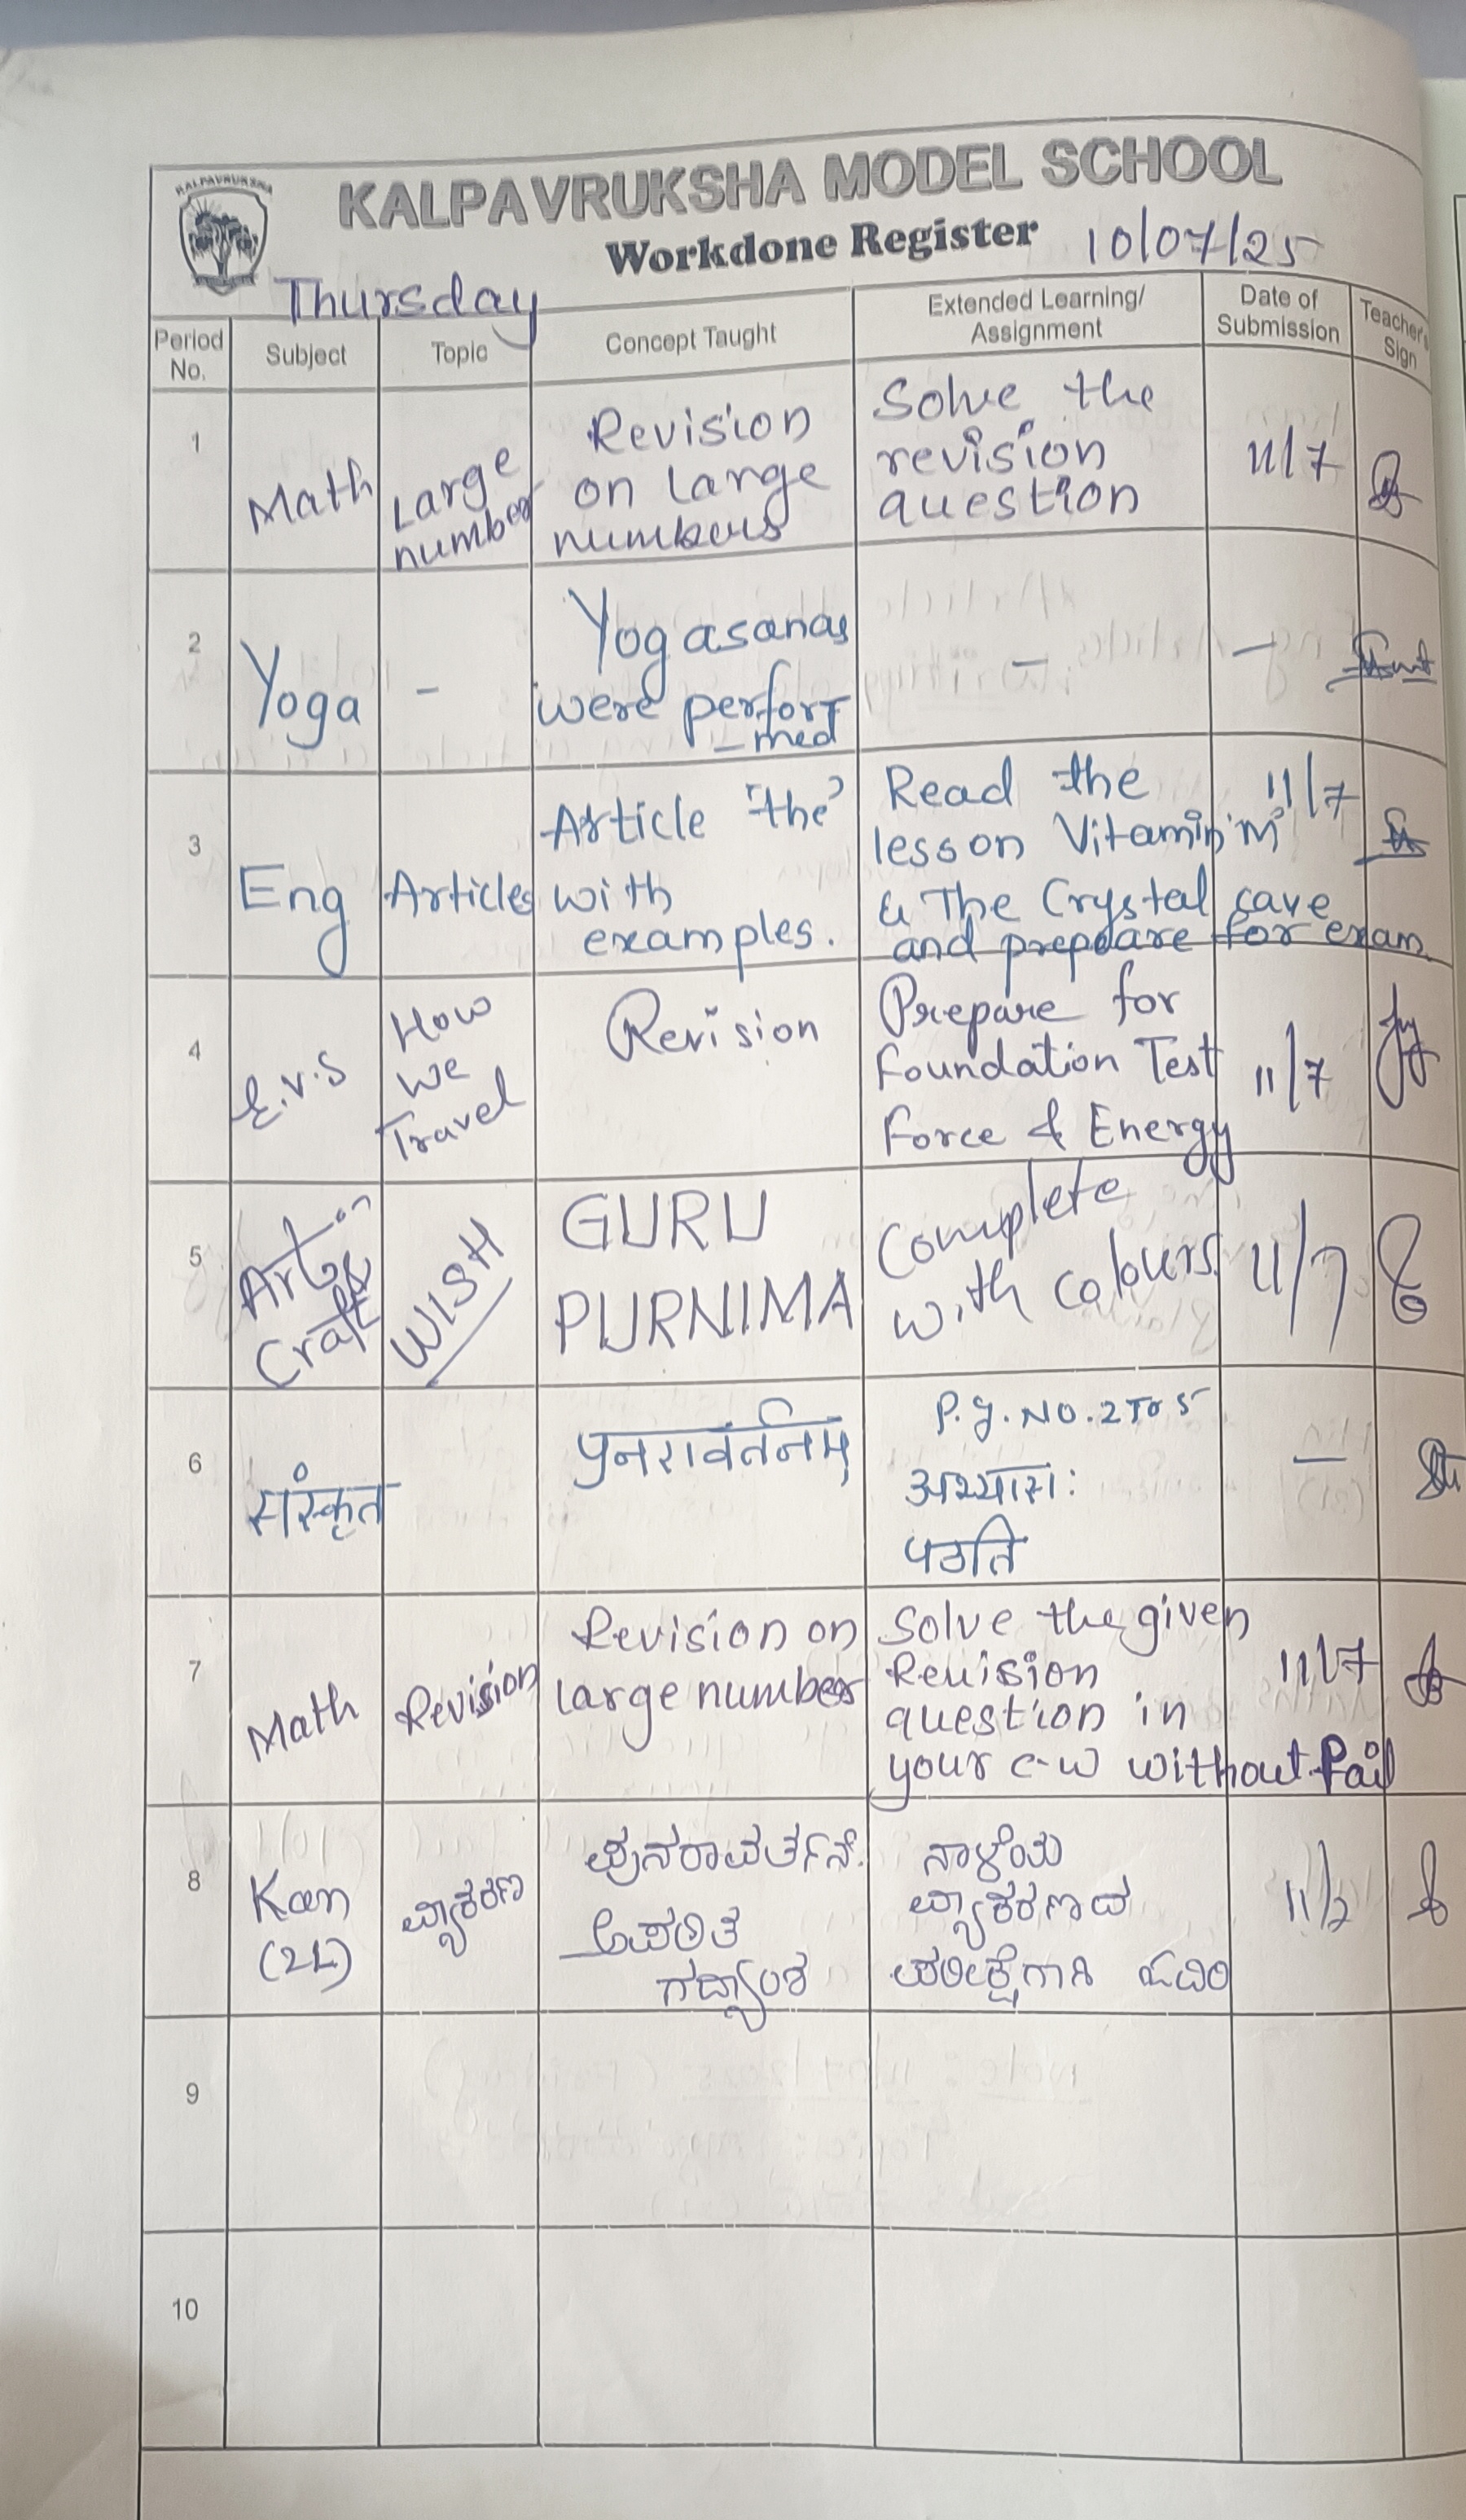 KALPAVRUKSHA
KALPAVRUKSHA MODEL SCHOOL
Workdone Register 10/07/25
Thursday
Period No.
Subject
Topic
Concept Taught
Extended Learning/
Assignment
Date of
Submission
Teacher's
Sign
1
Math
Large
number
Revision
on large
numbers
Solve the
revision
question
11/7
2
Yoga
-
Yogasanas
were perfor
-med
-
-
3
Eng
Articles
Article 'the'
with
examples.
Read the
lesson Vitamin 'm'
& The Crystal cave
and prepare for exam.
11/7
4
E.V.S
How
We
Travel
Revision
Prepare for
Foundation Test
Force & Energy
11/7
5
Art &
Craft
WISH
GURU
PURNIMA
Complete
with colours
11/7
6
संस्कृत
पुनरावर्तनम्
P.g. No. 2 To 5
अभ्यासः
पठति
-
7
Math
Revision
Revision on
large number
Solve the given
Revision
question in
your c-w without fail
11/7
8
Kan
(2L)
ವ್ಯಾಕರಣ
ಪುನರಾವರ್ತನೆ.
ಅಪಠಿತ
ಗದ್ಯಾಂಶ
ನಾಳೆಯ
ವ್ಯಾಕರಣದ
ಪರೀಕ್ಷೆಗಾಗಿ
11/7
9
10